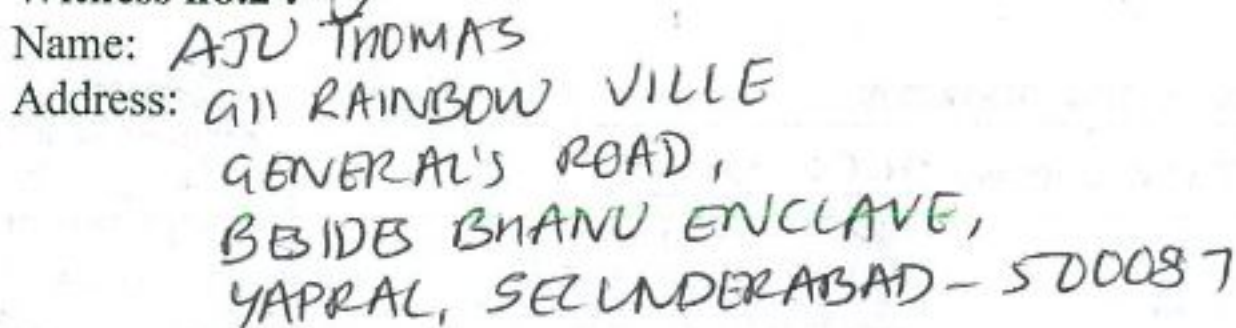 Witness no.2 :
Name: AJU THOMAS
Address: G11 RAINBOW VILLE
GENERAL'S ROAD,
BESIDES BHANU ENCLAVE,
YAPRAL, SECUNDERABAD - 500087